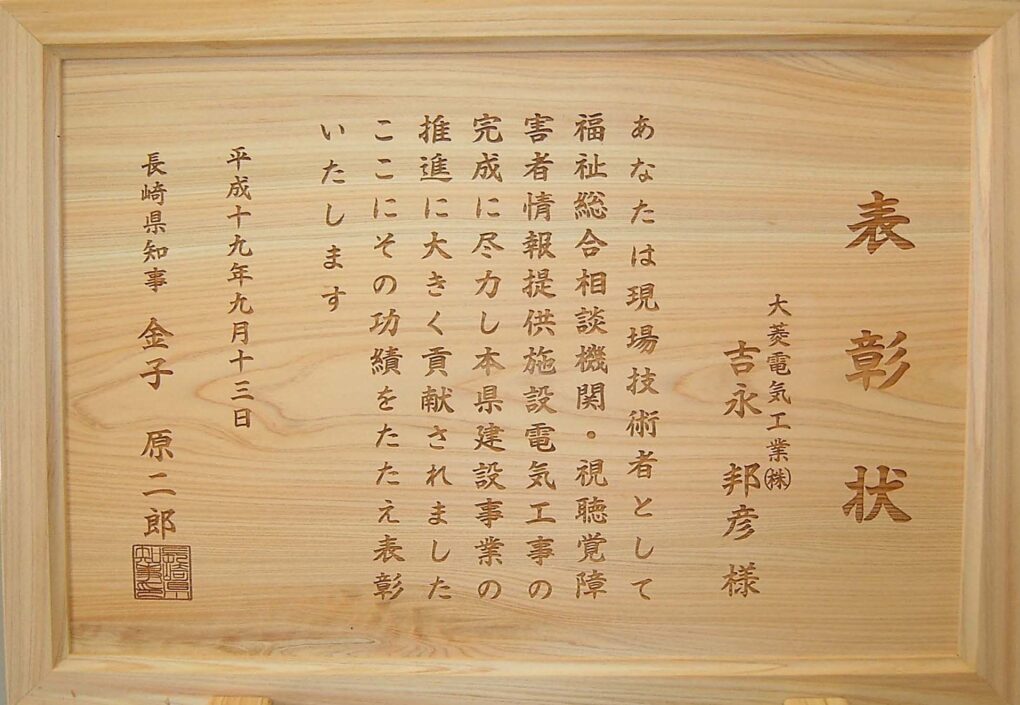 表彰状
大菱電気工業㈱
吉永 邦彦 様
あなたは現場技術者として
福祉総合相談機関・視聴覚障
害者情報提供施設電気工事の
完成に尽力し本県建設事業の
推進に大きく貢献されました
ここにその功績をたたえ表彰
いたします
平成十九年九月十三日
長崎県知事 金子 原二郎
長崎県知事印